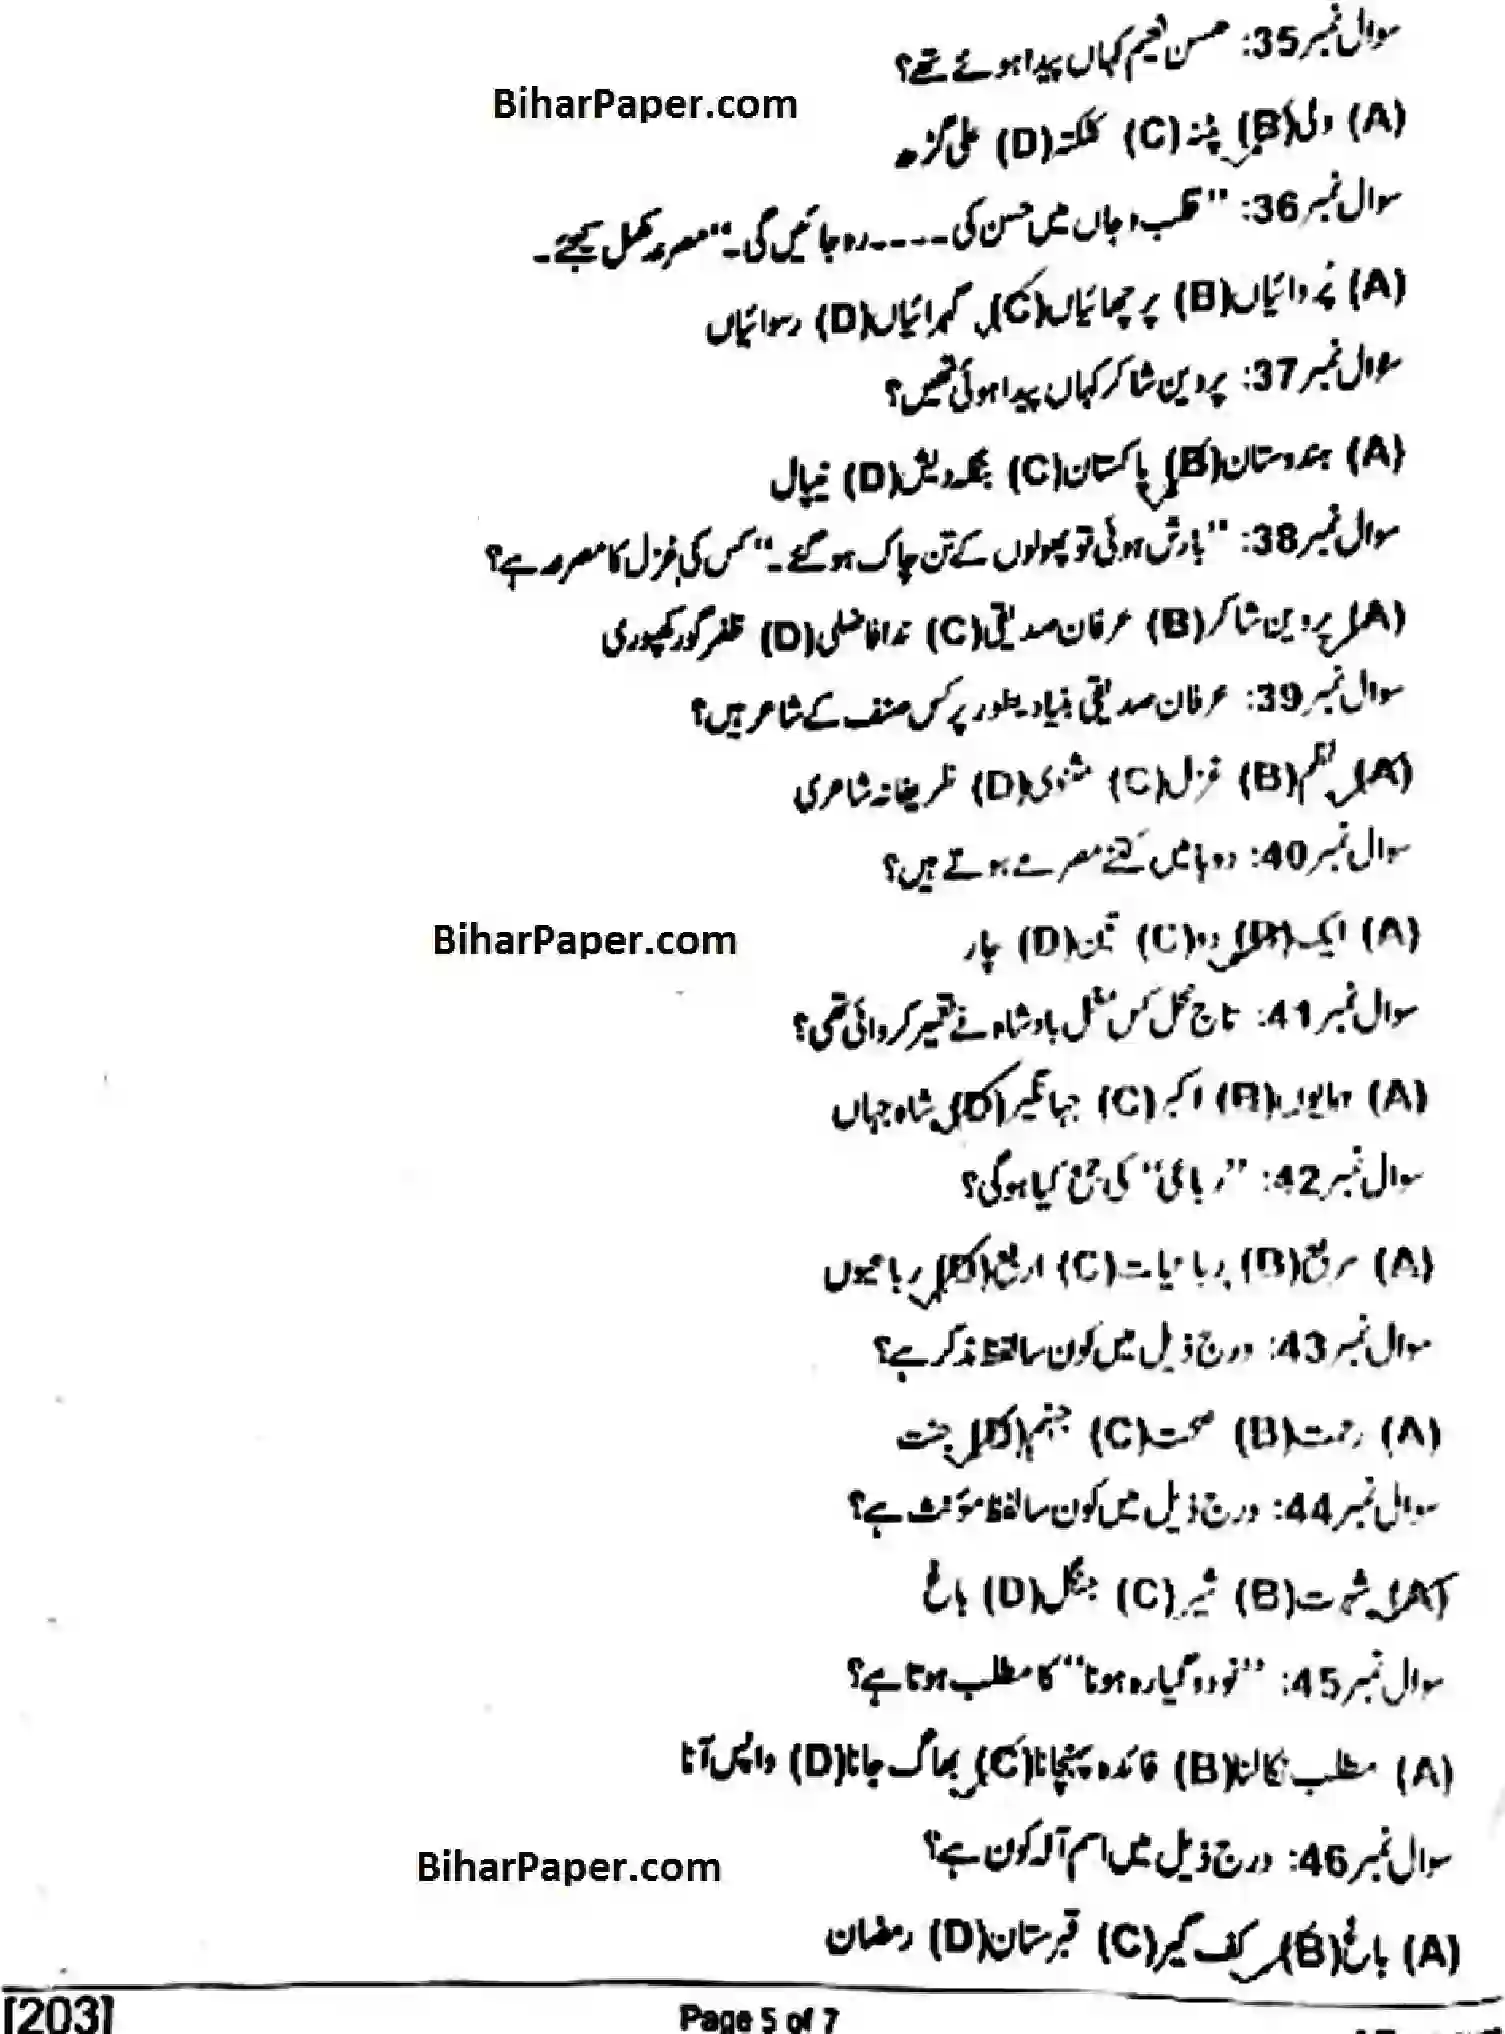 سوال نمبر35: حسن نعیم کہاں پیدا ہوئے تھے؟
BiharPaper.com
(A) دلی(B) پٹنہ (C) کلکتہ(D) علی گڑھ
سوال نمبر36: "قلب و جاں میں حسن کی ----رہ جائیں گی۔"مصرعہ مکمل کیجئے۔
(A) پُروائیاں(B) پرچھائیاں(C) گہرائیاں(D) رسوائیاں
سوال نمبر37: پروین شاکر کہاں پیدا ہوئی تھیں؟
(A) ہندوستان(B) پاکستان(C) بنگلہ دیش(D) نیپال
سوال نمبر38: "بارش ہوئی تو پھولوں کے تن چاک ہو گئے۔"کس کی غزل کا مصرعہ ہے؟
(A) پروین شاکر(B) عرفان صدیقی(C) ندا فاضلی(D) ظفر گورکھپوری
سوال نمبر39: عرفان صدیقی بنیاد بطور پر کس صنف کے شاعر ہیں؟
(A) نظم(B) غزل(C) مثنوی(D) ظریفانہ شاعری
سوال نمبر40: دوہا میں کتنے مصرعے ہوتے ہیں؟
BiharPaper.com
(A) ایک(B) دو(C) تین(D) چار
سوال نمبر41: تاج محل کس مغل بادشاہ نے تعمیر کروائی تھی؟
(A) ہمایوں(B) اکبر(C) جہانگیر(D) شاہ جہاں
سوال نمبر42: "رباعی" کی جمع کیا ہوگی؟
(A) مربع(B) رباعیات(C) اربع(D) رباعیوں
سوال نمبر43: درج ذیل میں کون سا لفظ مذکر ہے؟
(A) رحمت(B) صحت(C) جہنم(D) جنت
سوال نمبر44: درج ذیل میں کون سا لفظ مؤنث ہے؟
(A) شہرت(B) شیر(C) جنگل(D) باغ
سوال نمبر45: "نو دو گیارہ ہونا" کا مطلب ہوتا ہے؟
(A) مطلب نکالنا(B) فائدہ پہنچانا(C) بھاگ جانا(D) واپس آنا
سوال نمبر46: درج ذیل میں اسم آلہ کون ہے؟
BiharPaper.com
(A) باغ(B) کف گیر(C) قبرستان(D) رمضان
[203]
Page 5 of 7